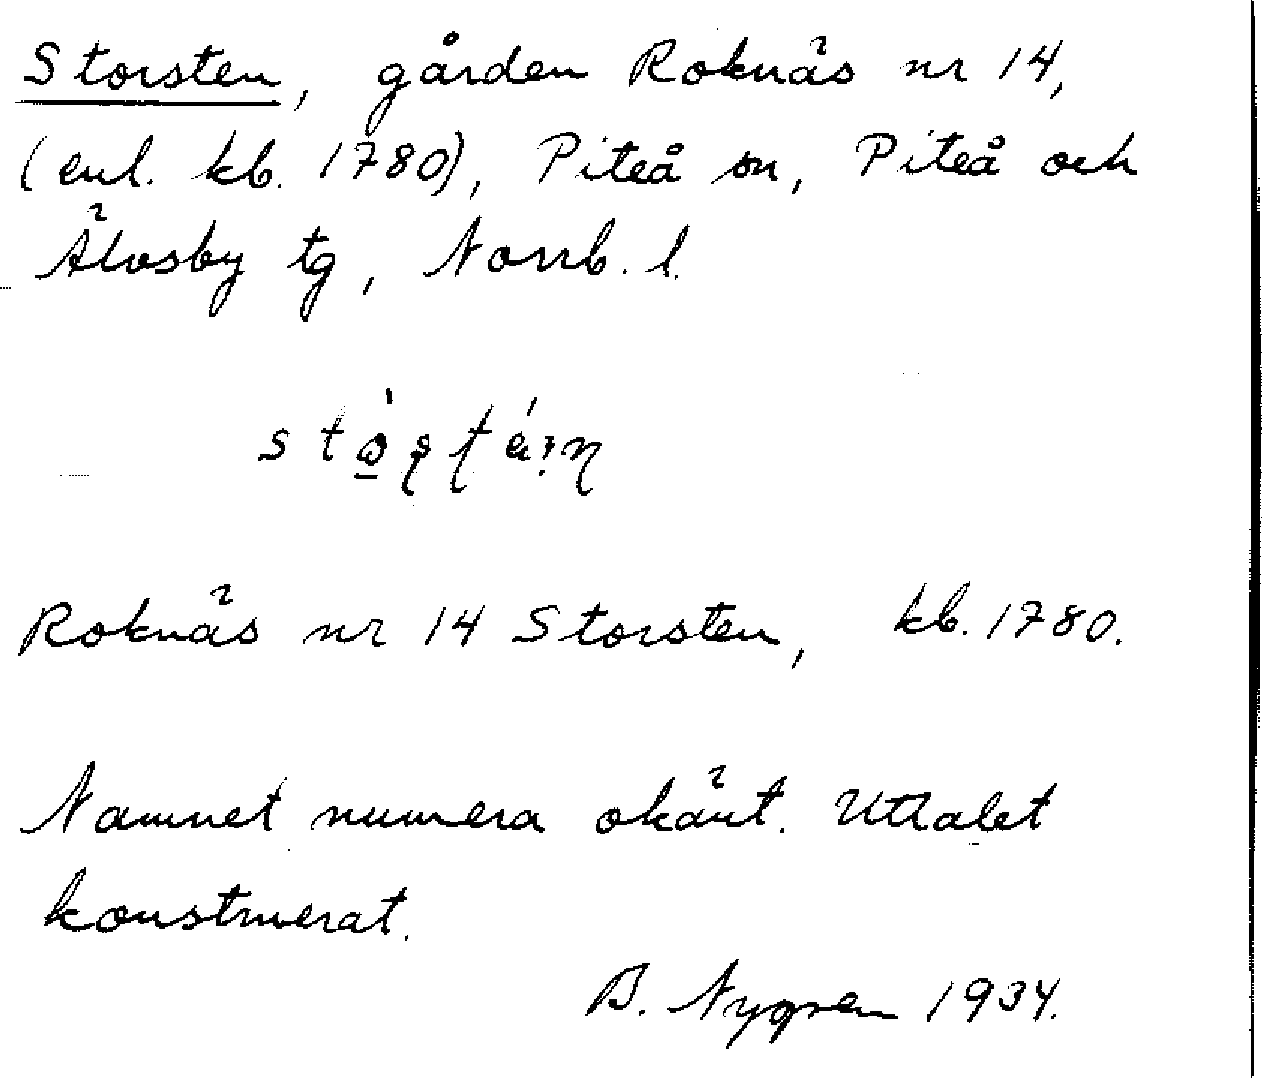 Storsten, gården Roknäs nr 14,
(enl. kb. 1780), Piteå sn, Piteå och
Älvsby tg, Norrb. l.
Roknäs nr 14 Storsten, kb. 1780.
Namnet numera okänt. Uttalet
konstruerat.
B. Nygren 1934.